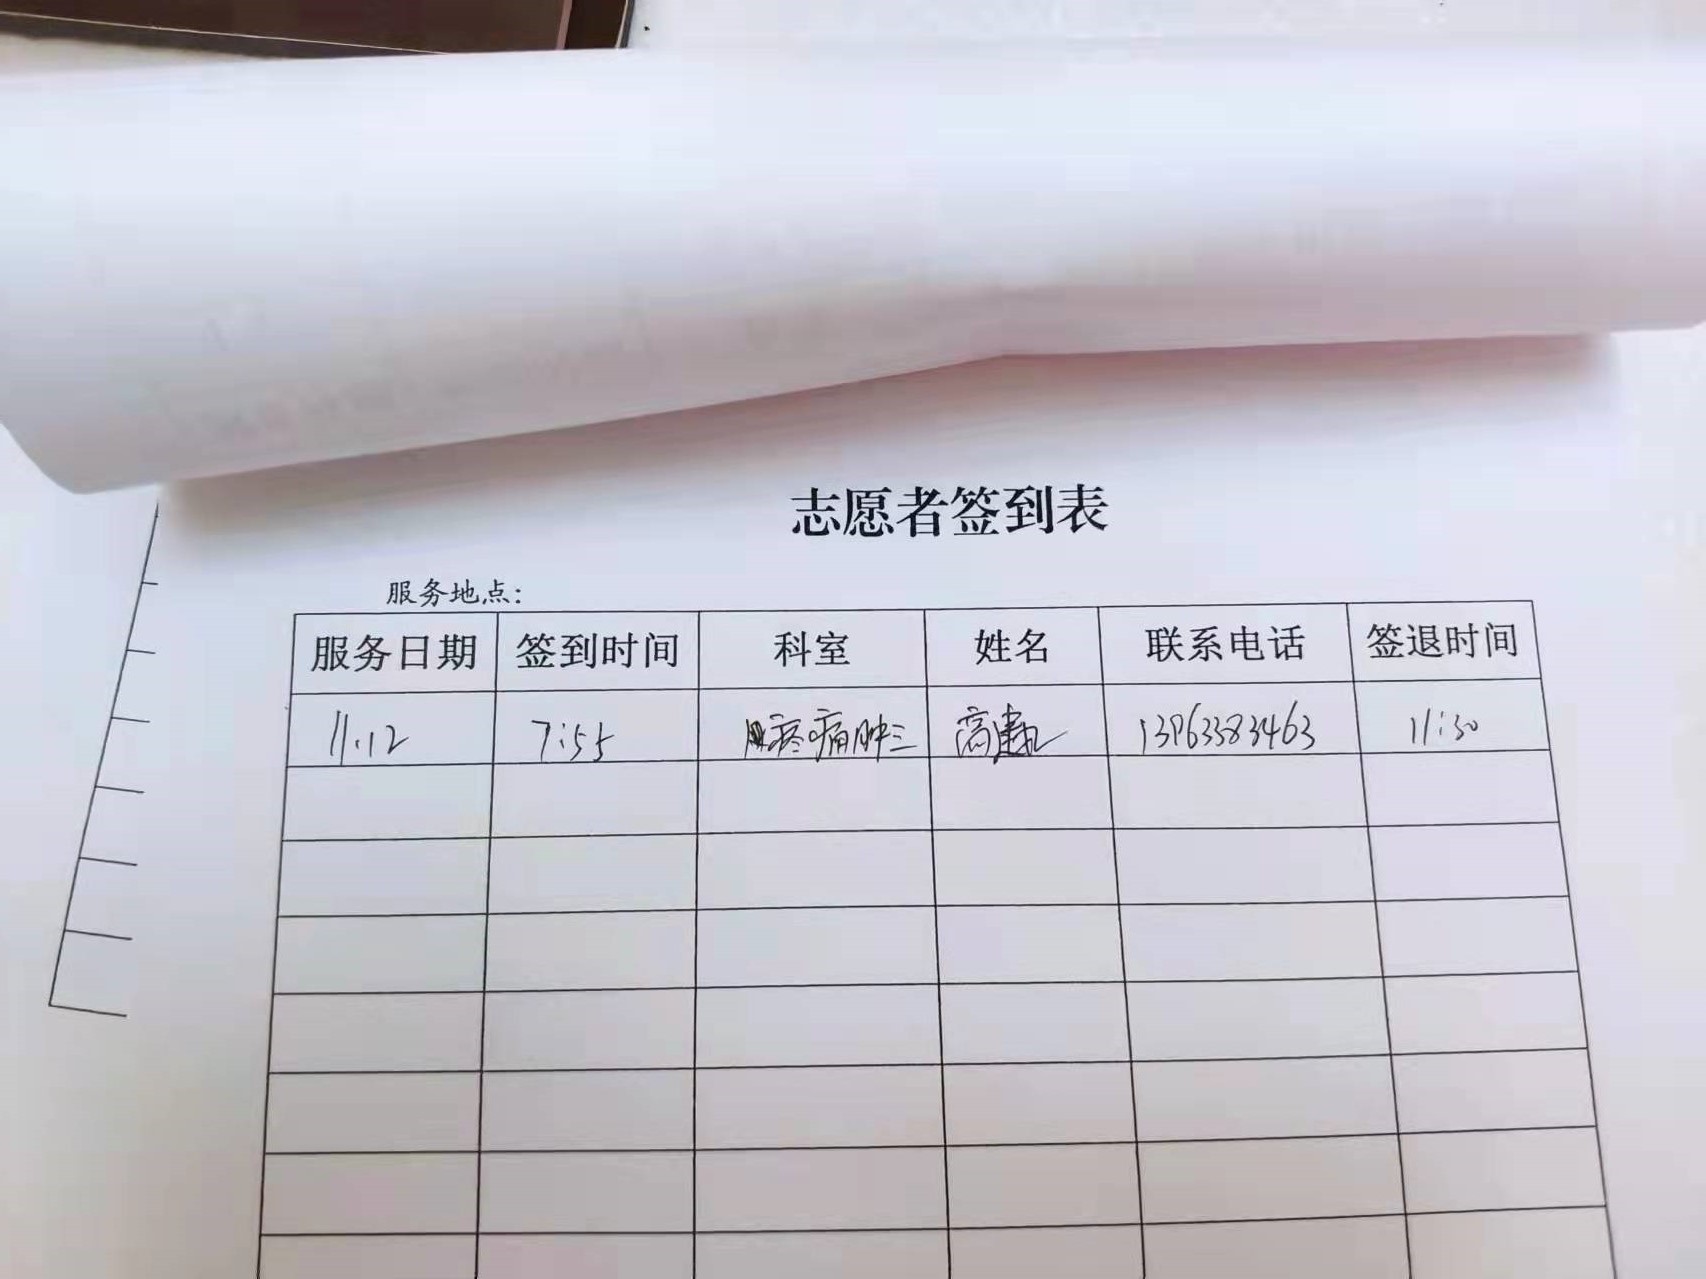 志愿者签到表
服务地点:
服务日期 签到时间 科室 姓名 联系电话 签退时间
11.12 7:55 疼痛肿三 高建 13963383463 11:30